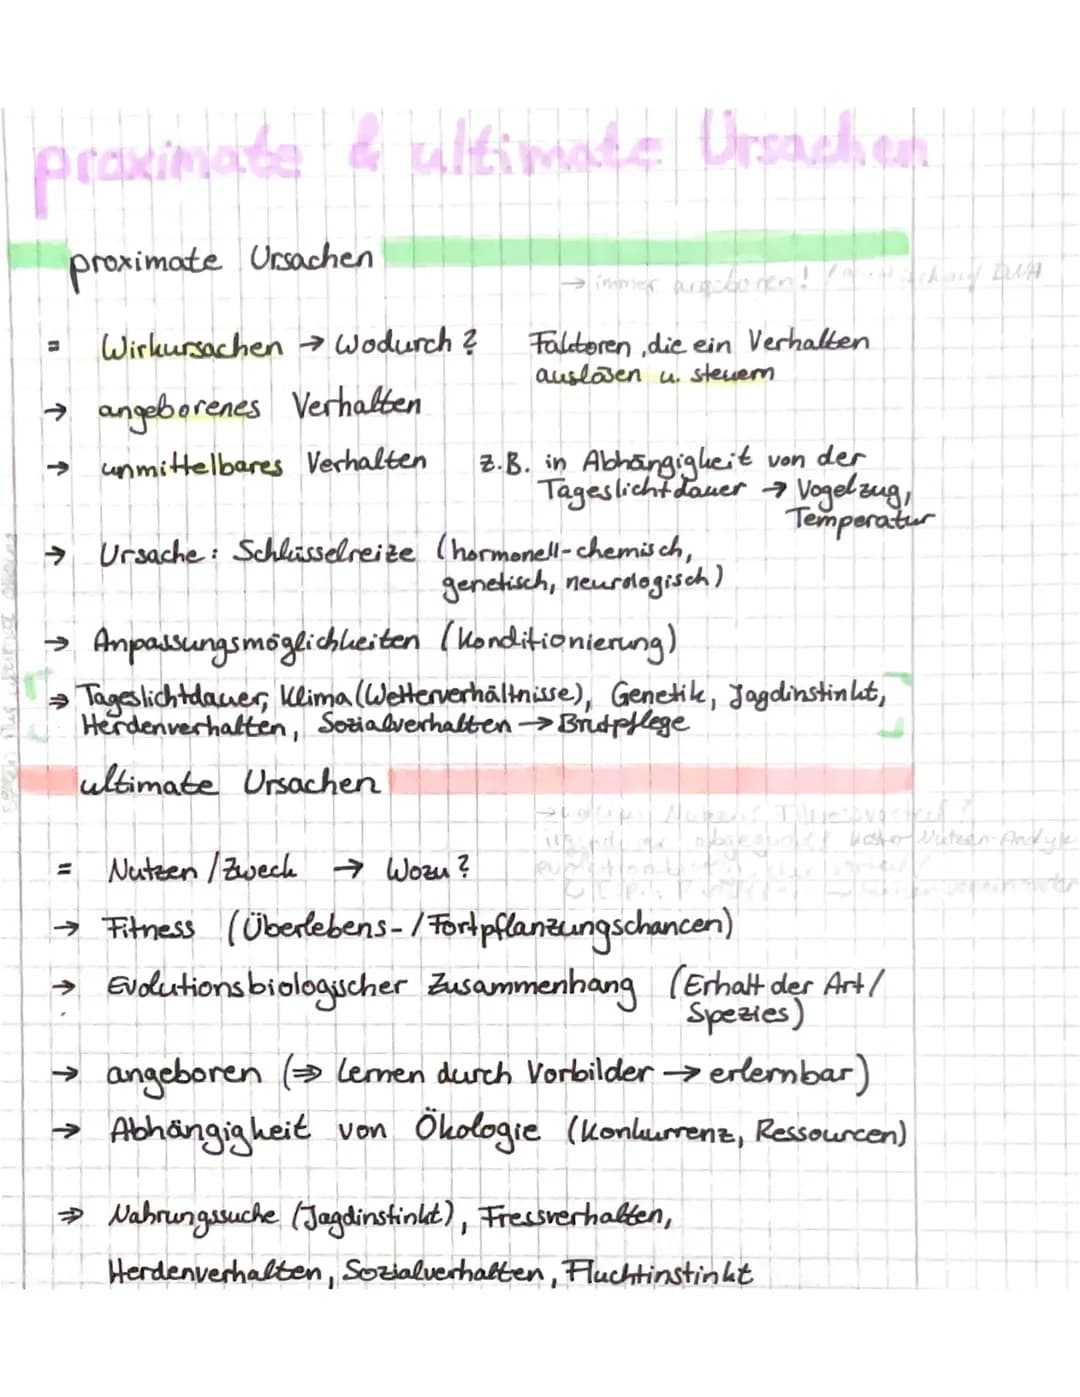 proximate & ultimate Ursachen
proximate Ursachen
→ immer angeboren! DNA
= Wirkursachen → Wodurch? Faktoren, die ein Verhalten
auslösen u. steuern
→ angeborenes Verhalten
→ unmittelbares Verhalten z.B. in Abhängigkeit von der
Tageslichtdauer → Vogelzug,
Temperatur
→ Ursache: Schlüsselreize (hormonell-chemisch,
genetisch, neurologisch)
→ Anpassungsmöglichkeiten (Konditionierung)
⇒ Tageslichtdauer, Klima (Wetterverhältnisse), Genetik, Jagdinstinkt,
Herdenverhalten, Sozialverhalten → Brutpflege
ultimate Ursachen
= Nutzen / Zweck → Wozu?
→ Fitness (Überlebens-/Fortpflanzungschancen)
→ Evolutionsbiologischer Zusammenhang (Erhalt der Art/
Spezies)
→ angeboren (⇒ Lernen durch Vorbilder → erlernbar)
→ Abhängigkeit von Ökologie (Konkurrenz, Ressourcen)
⇒ Nahrungssuche (Jagdinstinkt), Fressverhalten,
Herdenverhalten, Sozialverhalten, Fluchtinstinkt